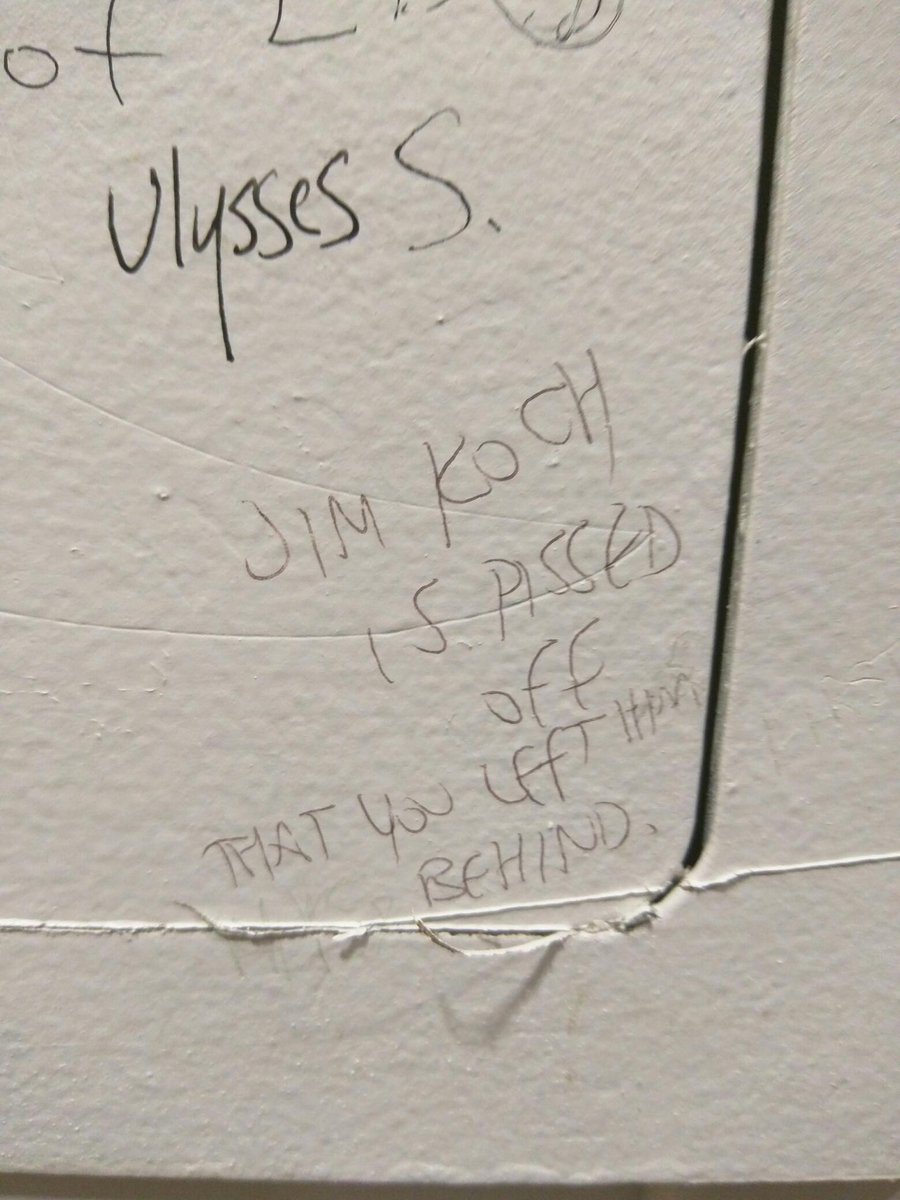 of
Ulysses S.
JIM KOCH
IS PISSED
OFF
THAT YOU LEFT HIM
BEHIND.